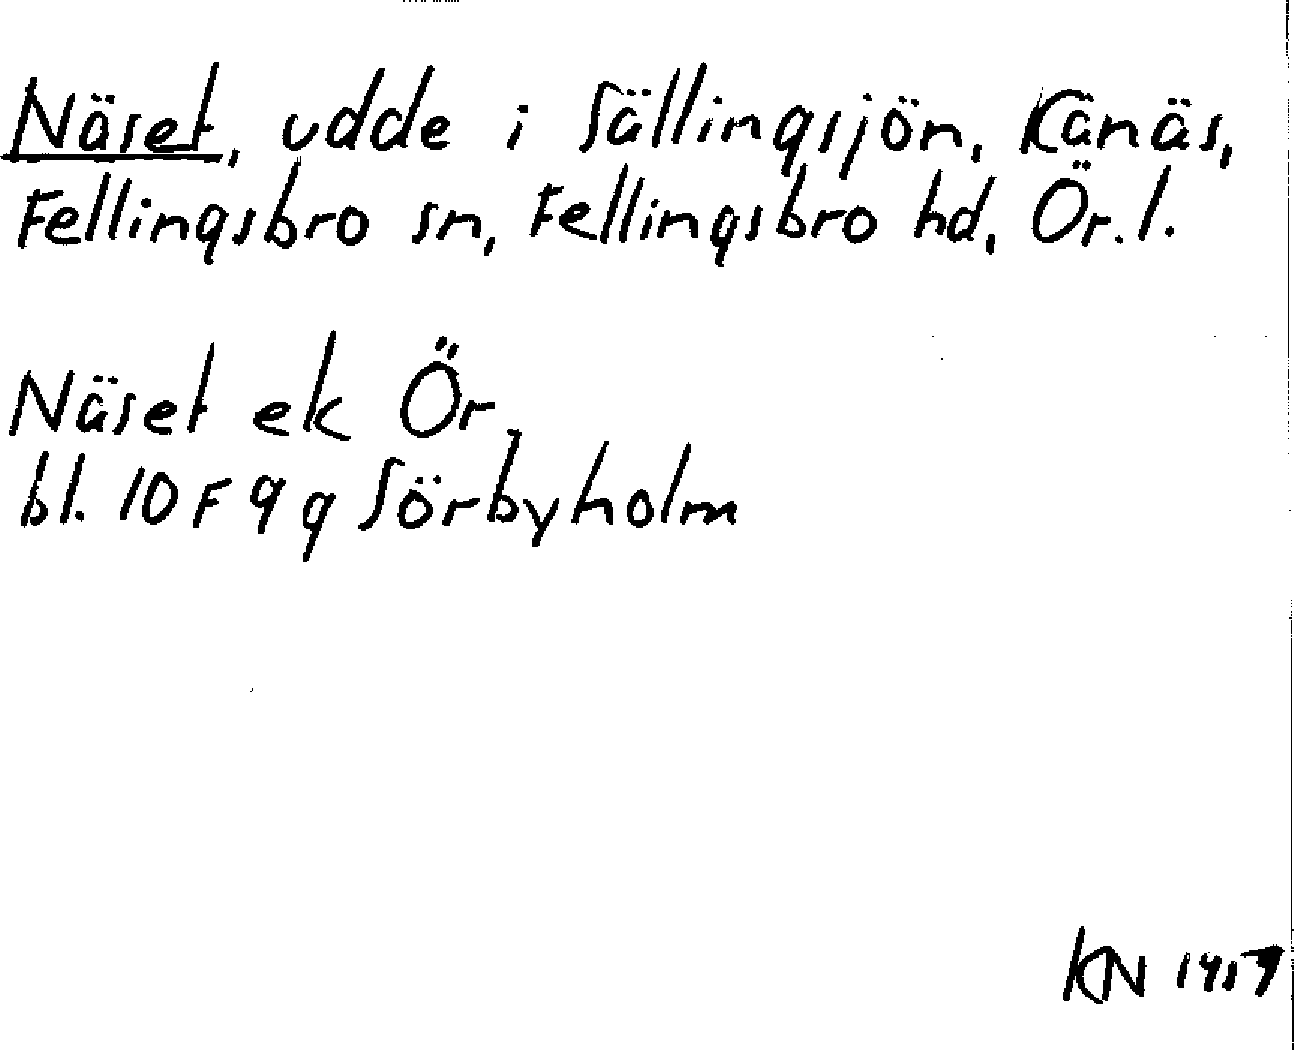 Näset, udde i Sällingsjön, Känäs,
Fellingsbro sn, Fellingsbro hd, Ör. l.
Näset ek Ör,
bl. 10F 9g Sörbyholm
KN